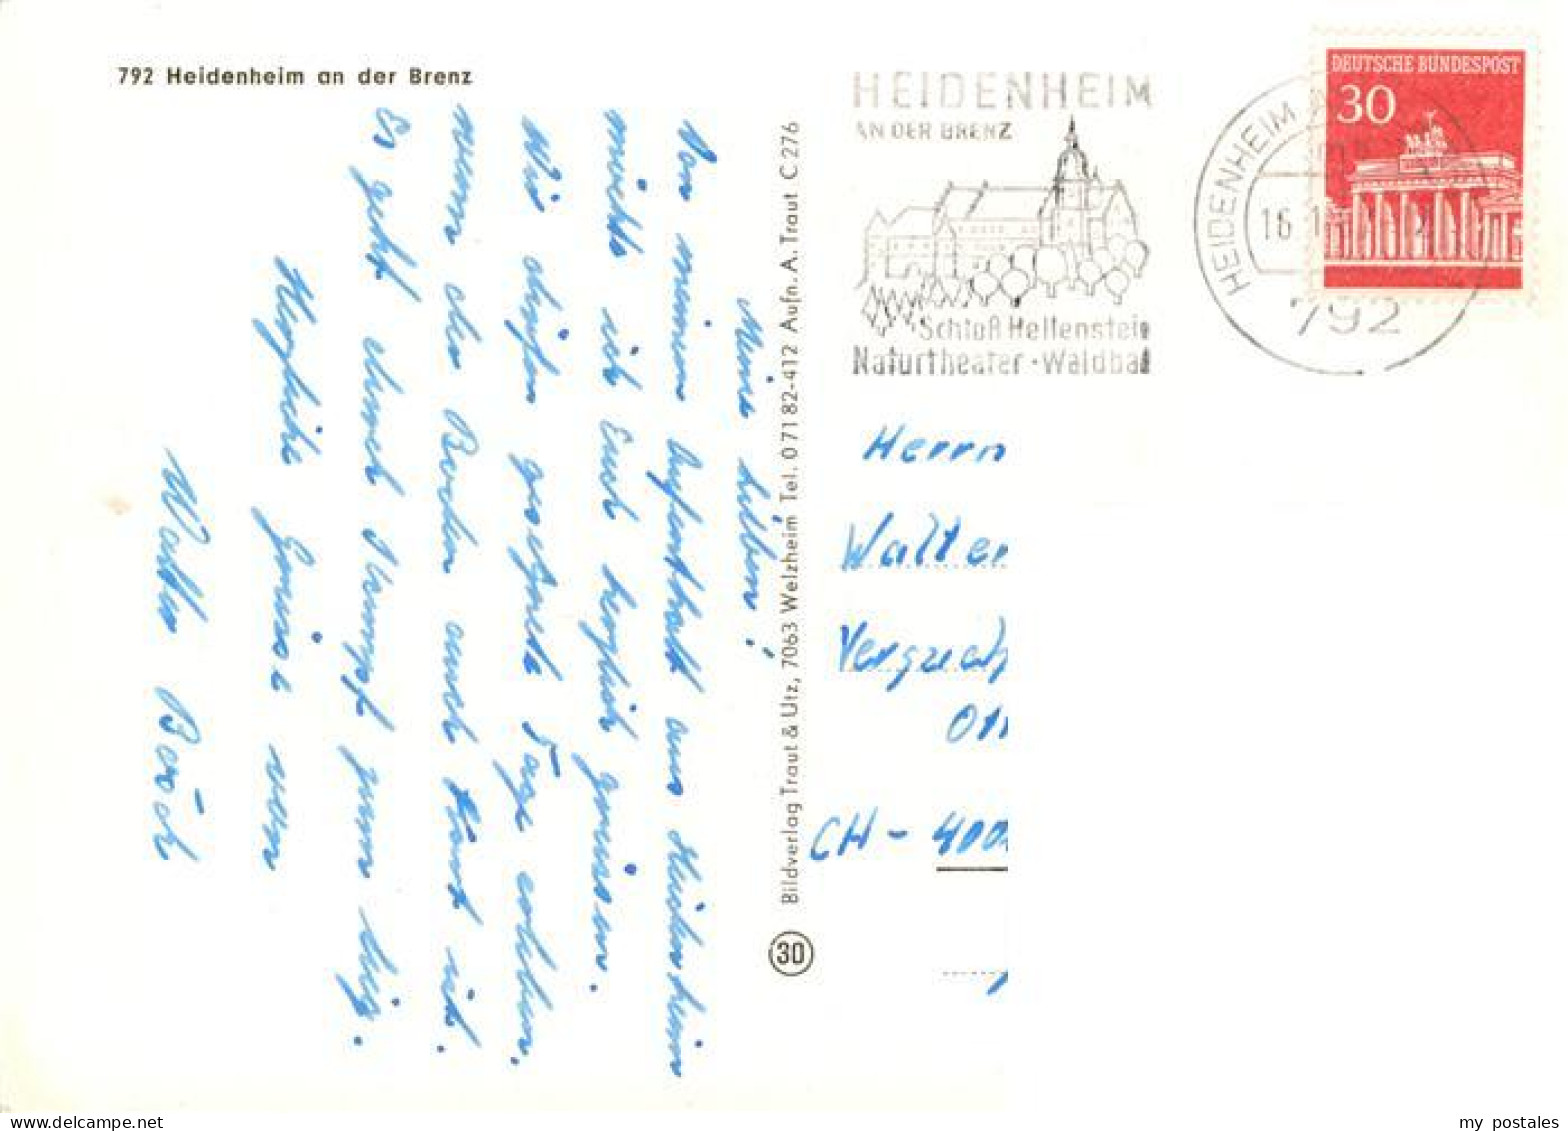 792 Heidenheim an der Brenz
Meine Lieben!
Von meinem Aufenthalt aus Heidenheim
möchte ich Euch herzlich grüssen.
Wir dürfen gesegnete Tage erleben.
wenn der Boden auch hart ist.
Es geht durch Kampf zum Sieg.
Herzliche Grüsse von
Walter
Bildverlag Traut & Utz, 7063 Welzheim Tel. 07182-412 Aufn. A. Traut C 276
30
HEIDENHEIM
AN DER BRENZ
Schloß Hellenstein
Naturtheater · Waldbad
HEIDENHEIM
16
792
DEUTSCHE BUNDESPOST
30
Herrn
Walter
CH - 400
my postales